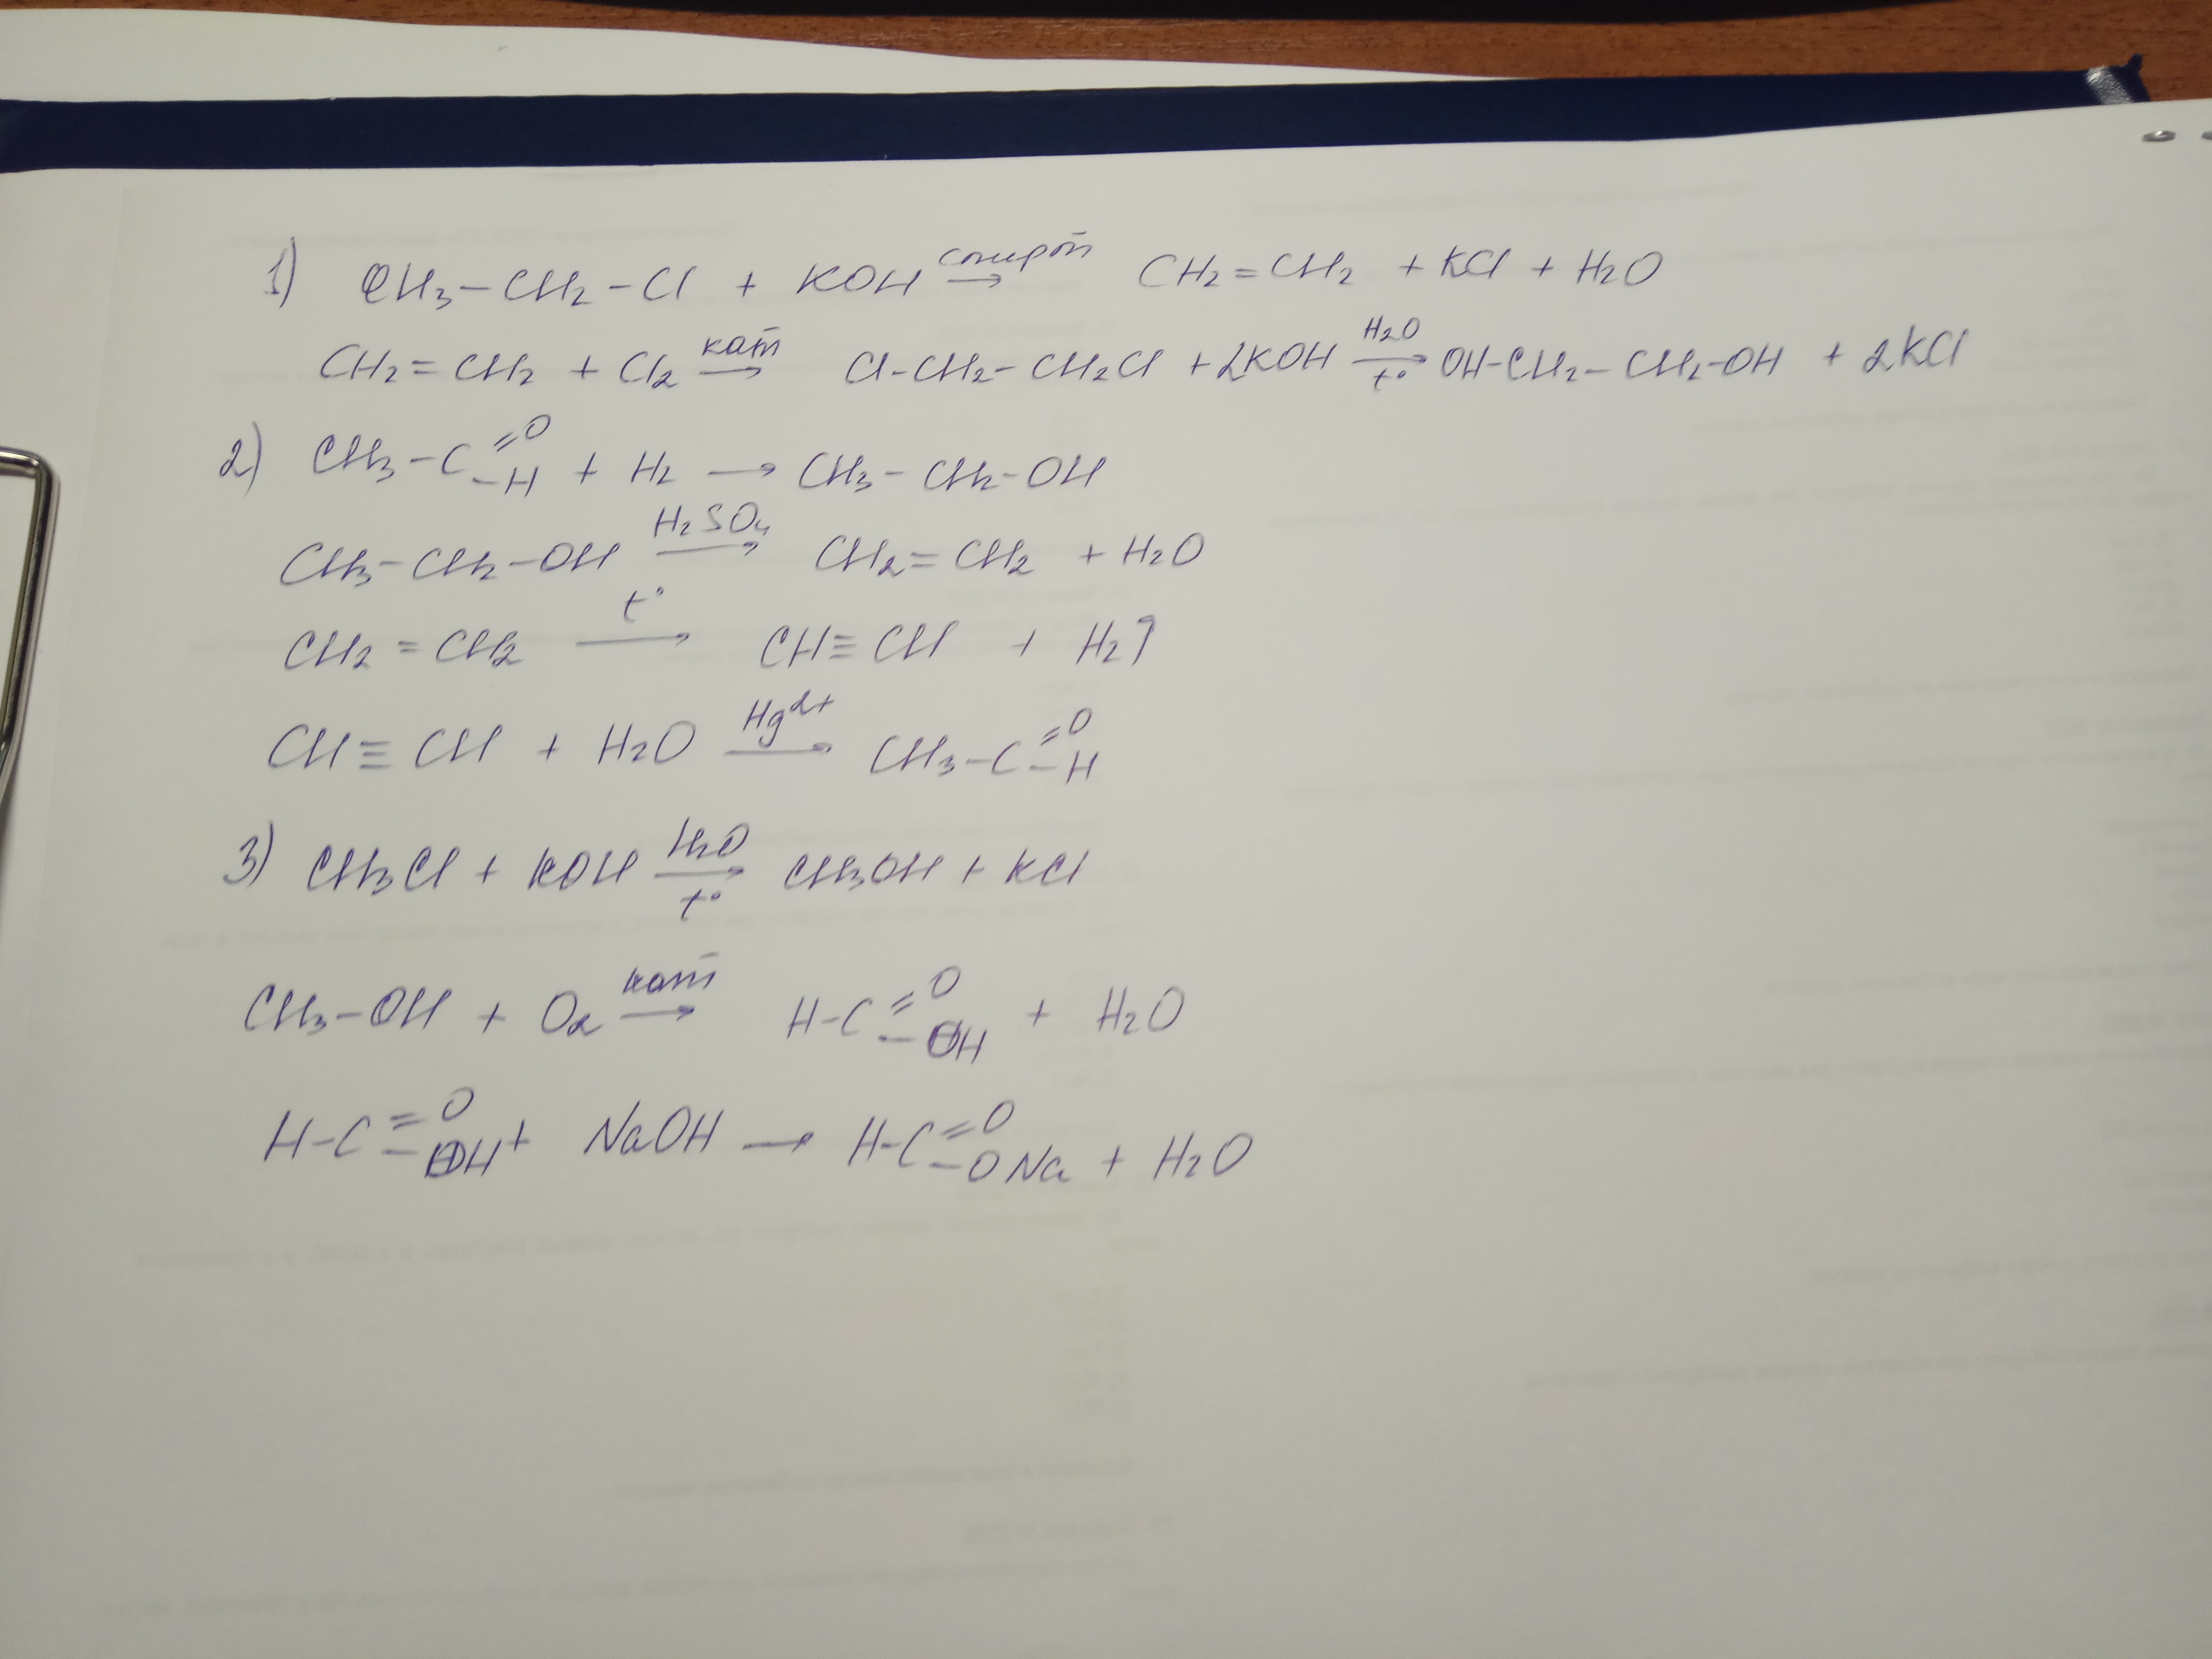 1) CH₃–CH₂–Cl + KOH –спирт→ CH₂=CH₂ + KCl + H₂O
CH₂=CH₂ + Cl₂ –кат→ Cl–CH₂–CH₂Cl + 2KOH –H₂O, t°→ OH–CH₂–CH₂–OH + 2KCl
2) CH₃–C(=O)–H + H₂ → CH₃–CH₂–OH
CH₃–CH₂–OH –H₂SO₄→ CH₂=CH₂ + H₂O
CH₂=CH₂ –t°→ CH≡CH + H₂↑
CH≡CH + H₂O –Hg²⁺→ CH₃–C(=O)–H
3) CH₃Cl + KOH –H₂O, t°→ CH₃OH + KCl
CH₃–OH + O₂ –кат→ H–C(=O)–OH + H₂O
H–C(=O)–OH + NaOH → H–C(=O)–ONa + H₂O